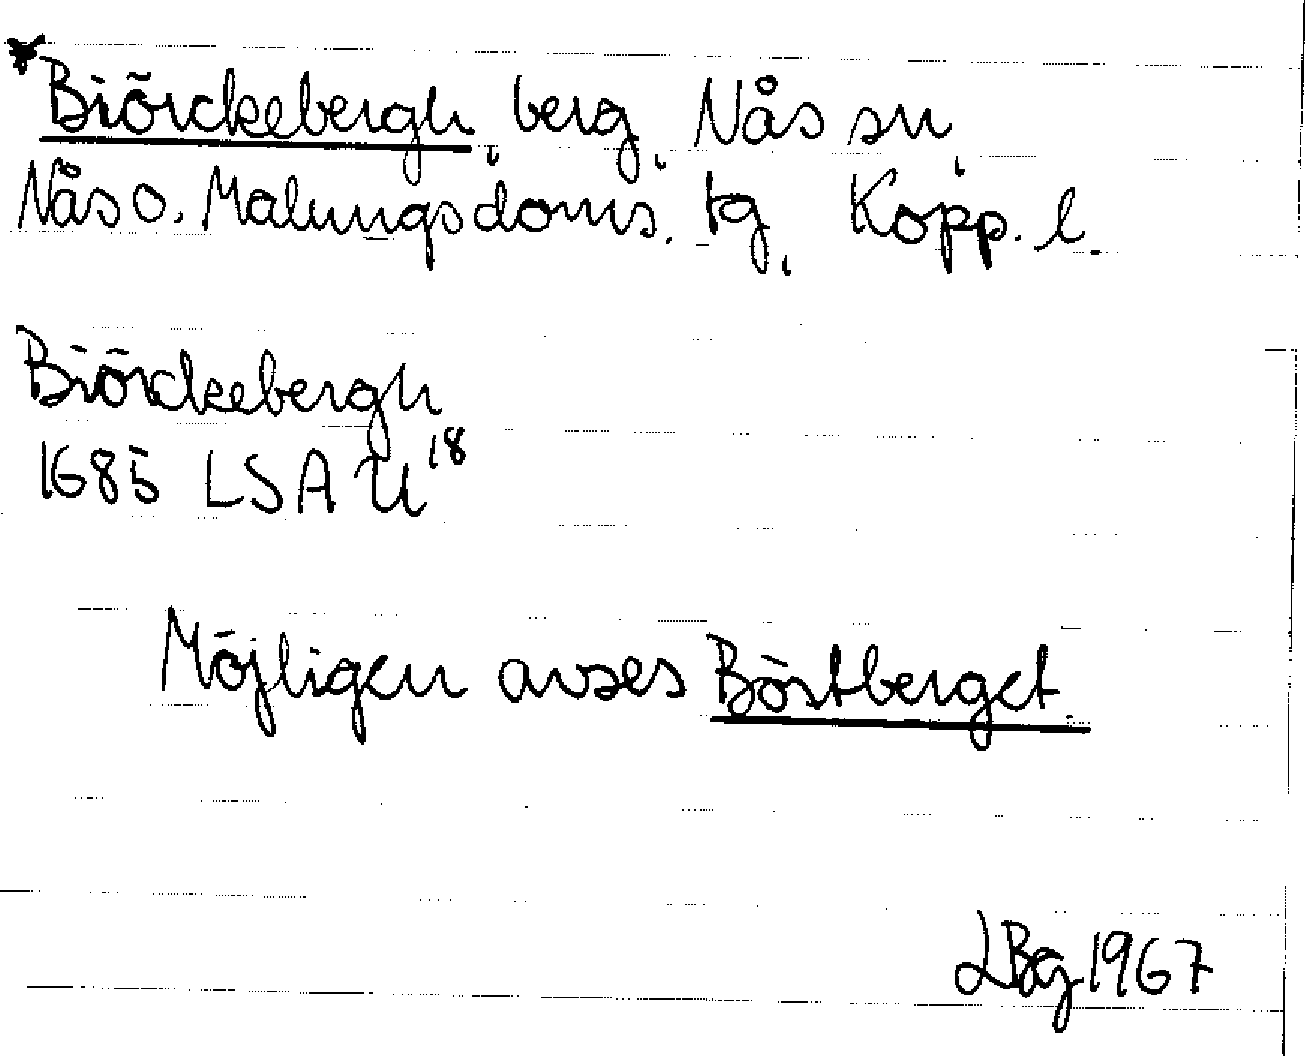 *Biörckebergh, berg, Nås sn,
Nås o. Malungs doms. tg, Kopp. l.
Biörckebergh
1685 LSA U18
Möjligen avses Böstberget.
LBg 1967